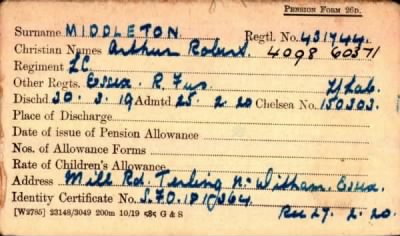 PENSION FORM 26D.
Surname MIDDLETON Regtl. No. 431744.
Christian Names Arthur Robert. 4098 60371
Regiment LC
Other Regts. Essex. R. Fus Y Lab.
Dischd 30. 3. 19 Admtd 25. 2. 20 Chelsea No. 150303.
Place of Discharge
Date of issue of Pension Allowance
Nos. of Allowance Forms
Rate of Children's Allowance
Address Mill Rd. Terling Nr. Witham. Essex.
Identity Certificate No. S.F.O.
[W2785] 23148/3049 200m 10/19 G & S 27. 2. 20.